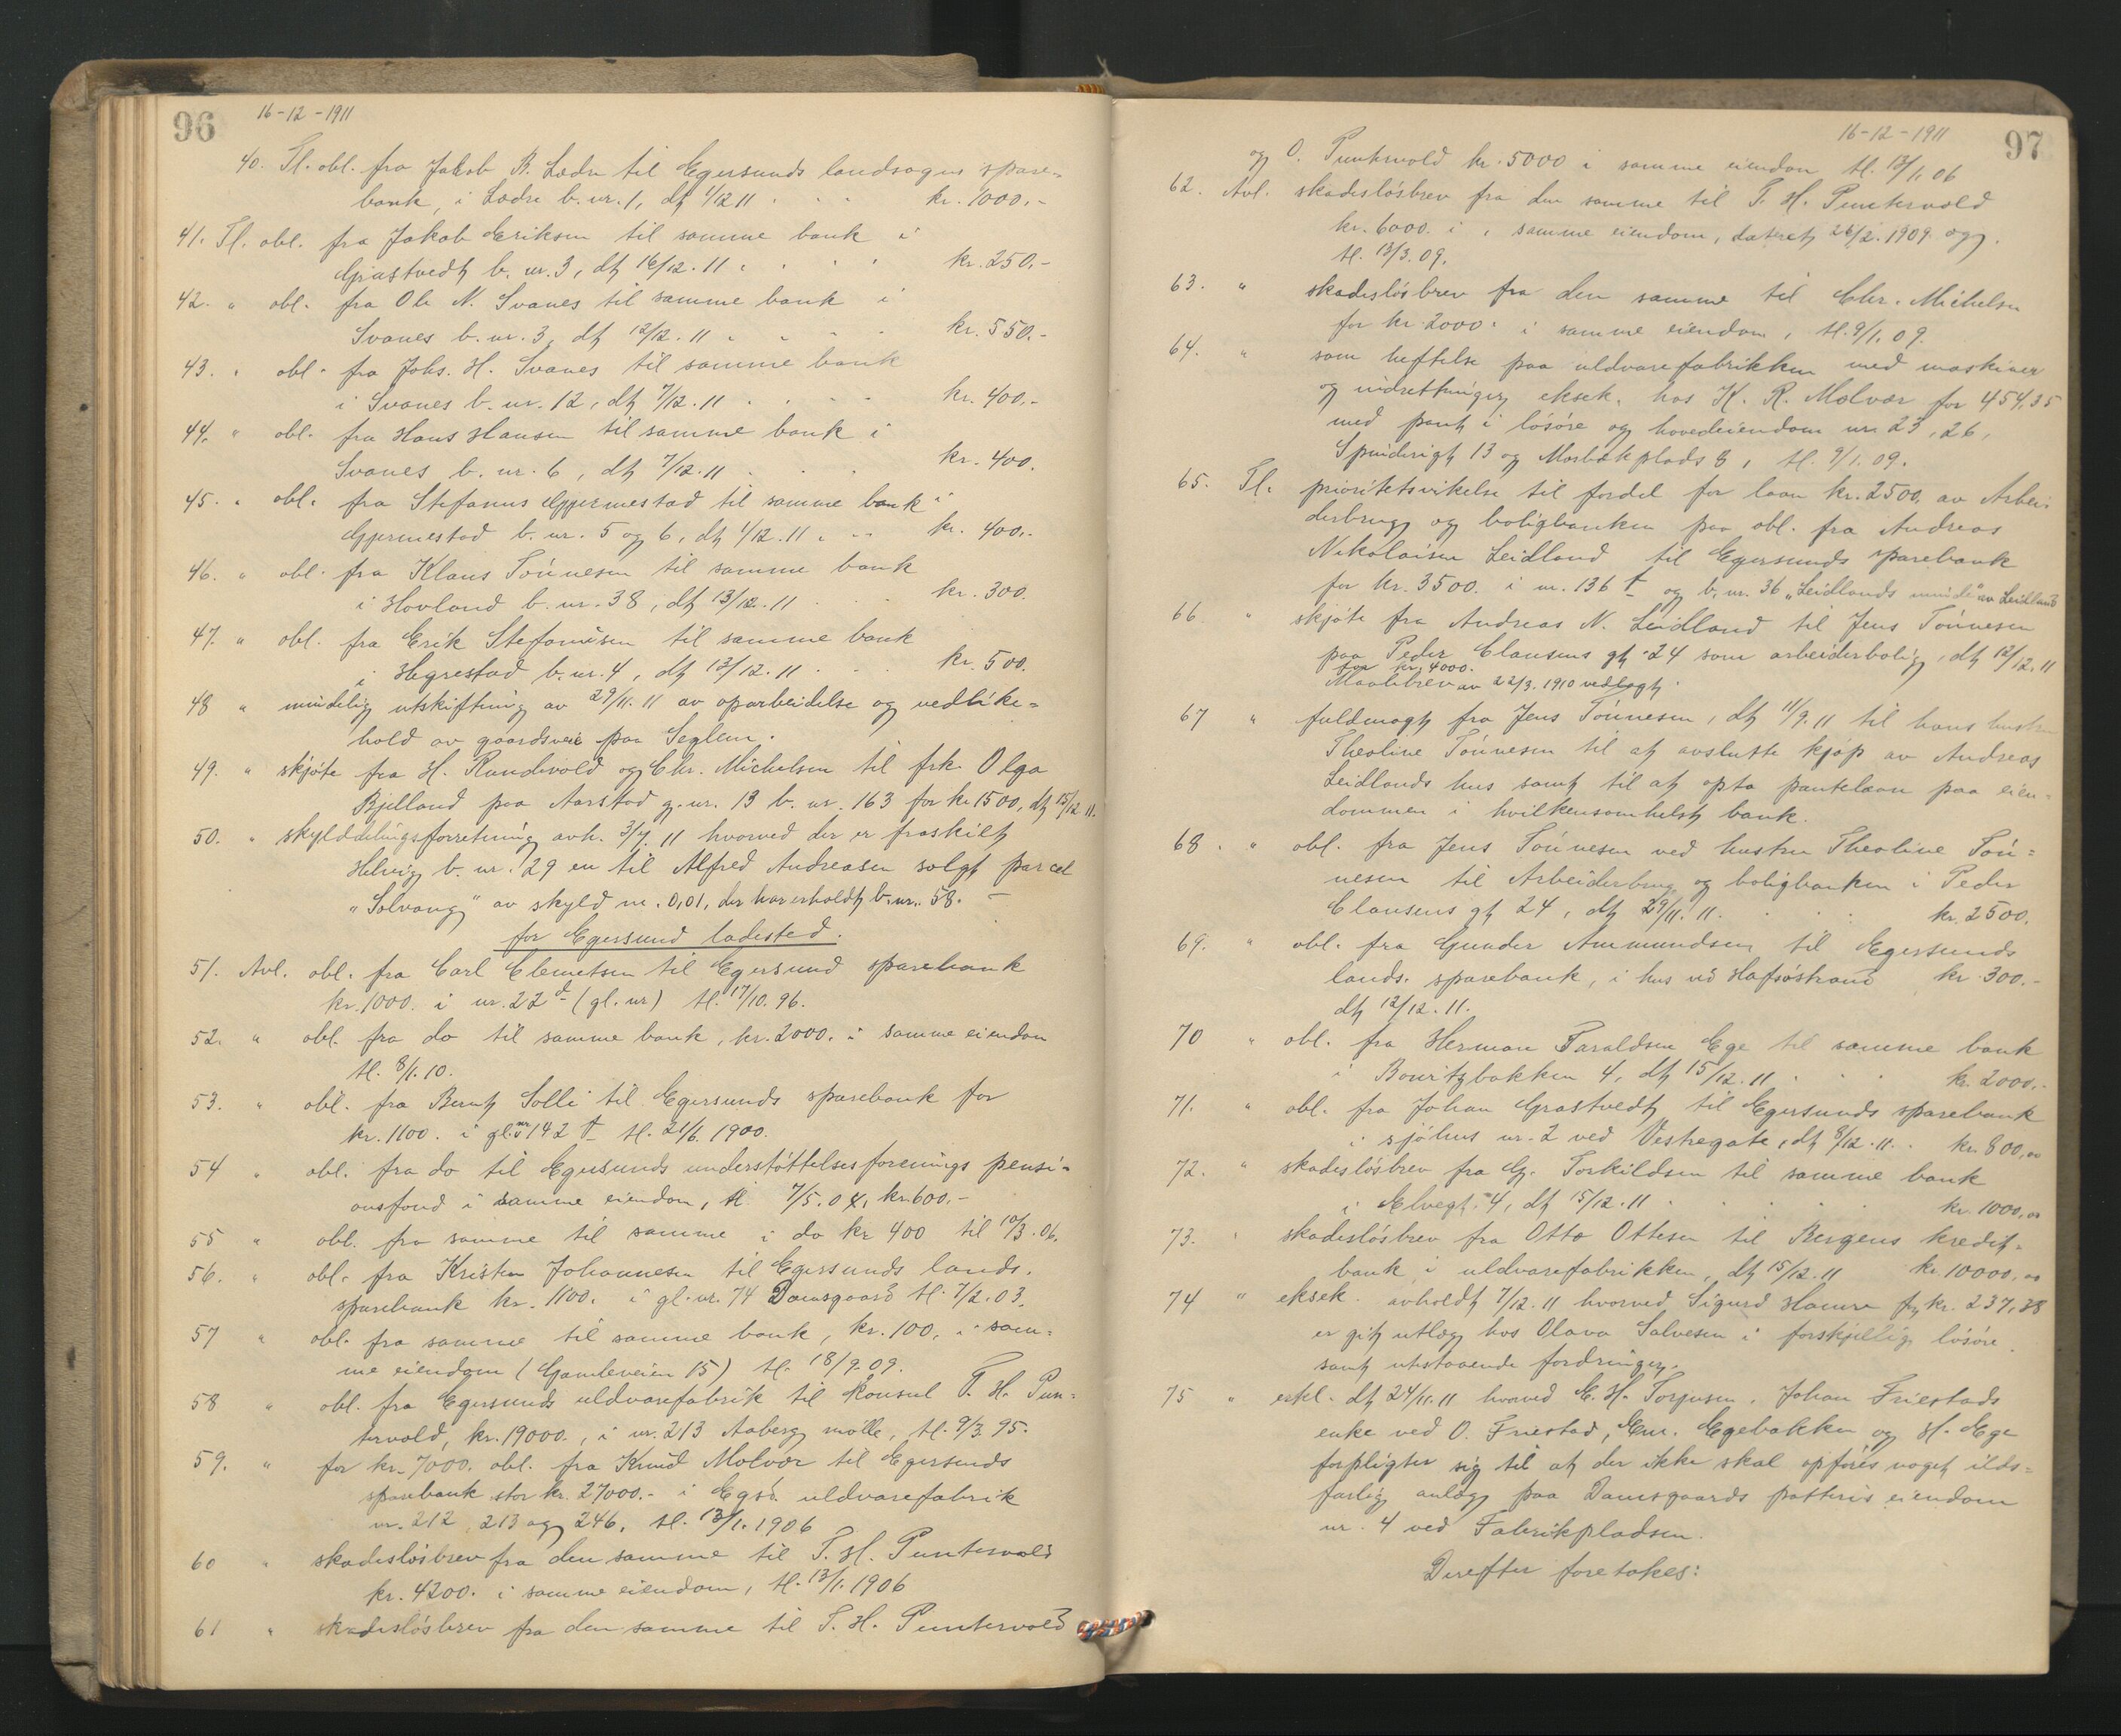 96
16-12-1911
40. Tl. obl. fra Jakob B. Lædre til Egersunds landsogns spare-
bank, i Lædre b. nr. 1, dt 1/12 11 kr. 1000,-
41. Tl. obl. fra Jakob Eriksen til samme bank i
Grastvedt b. nr. 3, dt 16/12. 11 kr. 250,-
42. " obl. fra Ole N. Svanes til samme bank i
Svanes b. nr. 3, dt 12/12. 11 kr. 550,-
43. " obl. fra Johs. H. Svanes til samme bank
i Svanes b. nr. 12, dt 7/12. 11 kr. 400,-
44. " obl. fra Hans Hansen til samme bank i
Svanes b. nr. 6, dt 7/12. 11 kr. 400.
45. " obl. fra Stefanus Gjermestad til samme bank i
Gjermestad b. nr. 5 og 6, dt 1/12. 11 kr. 400,-
46. " obl. fra Klaus Tönnesen til samme bank
i Hovland b. nr. 38, dt 13/12. 11 kr. 300.
47. " obl. fra Erik Stefansen til samme bank
i Hegrestad b. nr. 4, dt 12/12. 11 kr. 500.
48 " mindelig utskiftning av 29/11. 11 av oparbeidelse og vedlike-
hold av gaardsvei paa Seglem.
49. " skjöte fra H. Rundevold og Chr. Michelsen til frk. Olga
Bjelland paa Aarstad g. nr. 13 b. nr. 163 for kr 1500, dt 15/12 11.
50. " skylddelingsforretning avh. 3/7. 11 hvorved der er fraskilt
Helvig b. nr. 29 en til Alfred Andreasen solgt parcel
"Solvang" av skyld m. 0,01, der har erholdt b. nr. 58. -
for Egersund ladested.
51. Avl. obl. fra Carl Clemetsen til Egersund sparebank
kr. 1000. i nr. 22 d (gl. nr) tl. 17/10. 96.
52. " obl. fra do til samme bank, kr. 2000. i samme eiendom
tl. 8/1. 10.
53. " obl. fra Bernt Solli til Egersunds sparebank for
kr. 1100. i gl. nr 142 t tl. 21/6. 1900.
54 " obl. fra do til Egersunds understöttelsesforenings pensi-
onsfond i samme eiendom, tl. 7/5. 04, kr. 600,-
55 " obl. fra samme til samme i do kr 400 til 10/3. 06.
56. " obl. fra Kristen Johannesen til Egersunds lands.
sparebank kr. 1100. i gl. nr. 74 Damsgaard tl. 7/2. 03.
57 " obl. fra samme til samme bank, kr. 100, i sam-
me eiendom (Gamleveien 15) tl. 18/9. 09.
58 " obl. fra Egersunds uldvarefabrik til konsul T. H. Pun-
tervold, kr. 19000., i nr. 213 Aaberg mölle, tl. 9/3. 95.
59. " for kr. 7000. obl. fra Knud Molvær til Egersunds
sparebank stor kr. 27000.- i Egsd. uldvarefabrik
nr. 212, 213 og 246, tl. 13/1. 1906
60 " skadeslösbrev fra den samme til T. H. Puntervold
kr. 4200. i samme eiendom, tl. 13/1. 1906
61 " skadeslösbrev fra den samme til T. H. Puntervold
16-12-1911
97
og O. Puntervold kr. 5000 i samme eiendom tl. 13/1. 06
62. Avl. skadeslösbrev fra den samme til T. H. Puntervold
kr. 6000. i samme eiendom, dateret 26/2. 1909 og
tl. 13/3. 09.
63. " skadeslösbrev fra den samme til Chr. Michelsen
for kr. 2000. i samme eiendom, tl. 9/1. 09.
64. " som heftelse paa uldvarefabrikken med maskiner
og indretninger eksek. hos K. R. Molvær for 454,35
med pant i lösöre og hovedeiendom nr. 23, 26,
Spinderigt 13 og Mosbækplads 8, tl. 9/1. 09.
65. Tl. prioritetsvikelse til fordel for laan kr. 2500, av Arbei-
derbrug og boligbanken paa obl. fra Andreas
Nikolaisen Leidland til Egersunds sparebank
for kr. 3500. i nr. 136 t og b. nr. 36 "Leidlands minde" av Leidland
66. " skjöte fra Andreas N. Leidland til Jens Tönnesen
paa Peder Clausens gt 24 som arbeiderbolig, dt 12/12. 11
for kr. 4000.
Maalebrev av 22/3. 1910 vedlagt.
67 " fuldmagt fra Jens Tönnesen, dt 11/9. 11 til hans hustru
Theoline Tönnesen til at avslutte kjöp av Andreas
Leidlands hus samt til at opta pantelaan paa eien-
dommen i hvilkensomhelst bank.
68. " obl. fra Jens Tönnesen ved hustru Theoline Tön-
nesen til Arbeiderbrug og boligbanken i Peder
Clausens gt 24, dt 29/11. 11. kr. 2500.
69. " obl. fra Gunder Ammundsen til Egersunds
lands. sparebank, i hus vd Hafsöstrand kr 300.-
dt 12/12. 11.
70 " obl. fra Herman Taraldsen Ege til samme bank
i Bouritzbakken 4, dt 15/12. 11 kr. 2000.-
71. " obl. fra Johan Grastvedt til Egersunds sparebank
i sjöhus nr. 2 ved Vestregate, dt 8/12. 11. kr. 800,00
72. " skadeslösbrev fra G. Torkildsen til samme bank
i Elvegt. 4, dt 15/12. 11 kr. 1000,00
73. " skadeslösbrev fra Otto Ottesen til Bergens kredit-
bank i uldvarefabrikken, dt 15/12. 11 kr. 10000,00
74 " eksek. avholdt 7/12. 11 hvorved Sigurd Hamre f kr. 237,38
er git utlæg hos Olava Salvesen i forskjellig lösöre
samt utestaaende fordringer.
75 " erkl. dt 24/11. 11 hvorved E. H. Torjusen, Johan Friestads
enke ved O. Friestad, Enr. Egebakken og H. Ege
forpligter sig til at der ikke skal opföres noget ilds-
farlig anlæg paa Damsgaards potteris eiendom
nr. 4 ved Fabrikpladsen.
Derefter foretokes: